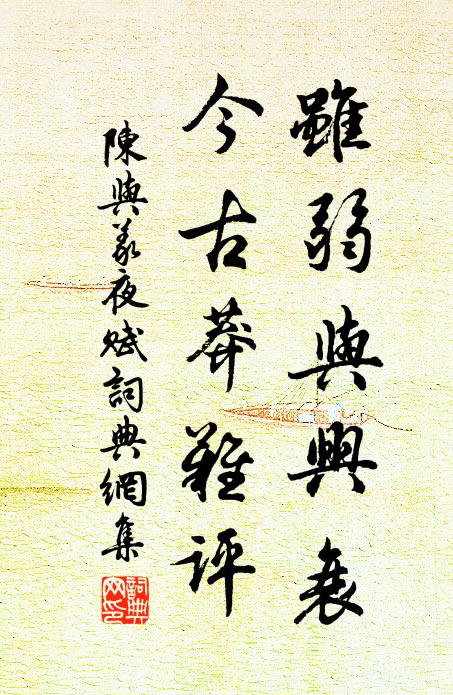 雖弱與興衰
今古莽難評
陳與義夜賦詞典網集
詞典
网印